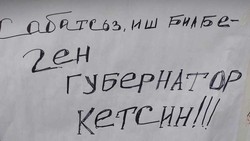 Сабатсыз, иш билбе-
ген
ГУБЕРНАТОР
КЕТСИН!!!